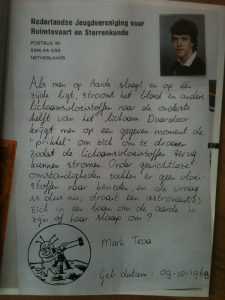 Nederlandse Jeugdvereniging voor
Ruimtevaart en Sterrenkunde
POSTBUS 38
5340 AA OSS
NETHERLANDS
Als men op Aarde slaapt en op een
zijde ligt, stroomt het bloed en andere
lichaamsvloeistoffen naar de onderste
helft van het lichaam. Daardoor
krijgt men op een gegeven moment de
'prikkel' om zich om te draaien
zodat de lichaamsvloeistoffen terug
kunnen stromen. Onder gewichtloze
omstandigheden zakken er geen vloei-
stoffen naar beneden, en de vraag
is dus nu, draait een astronaut(e)
zich in een baan om de aarde in
zijn of haar slaap om?
Mark
Geb. datum: 09-10-1968